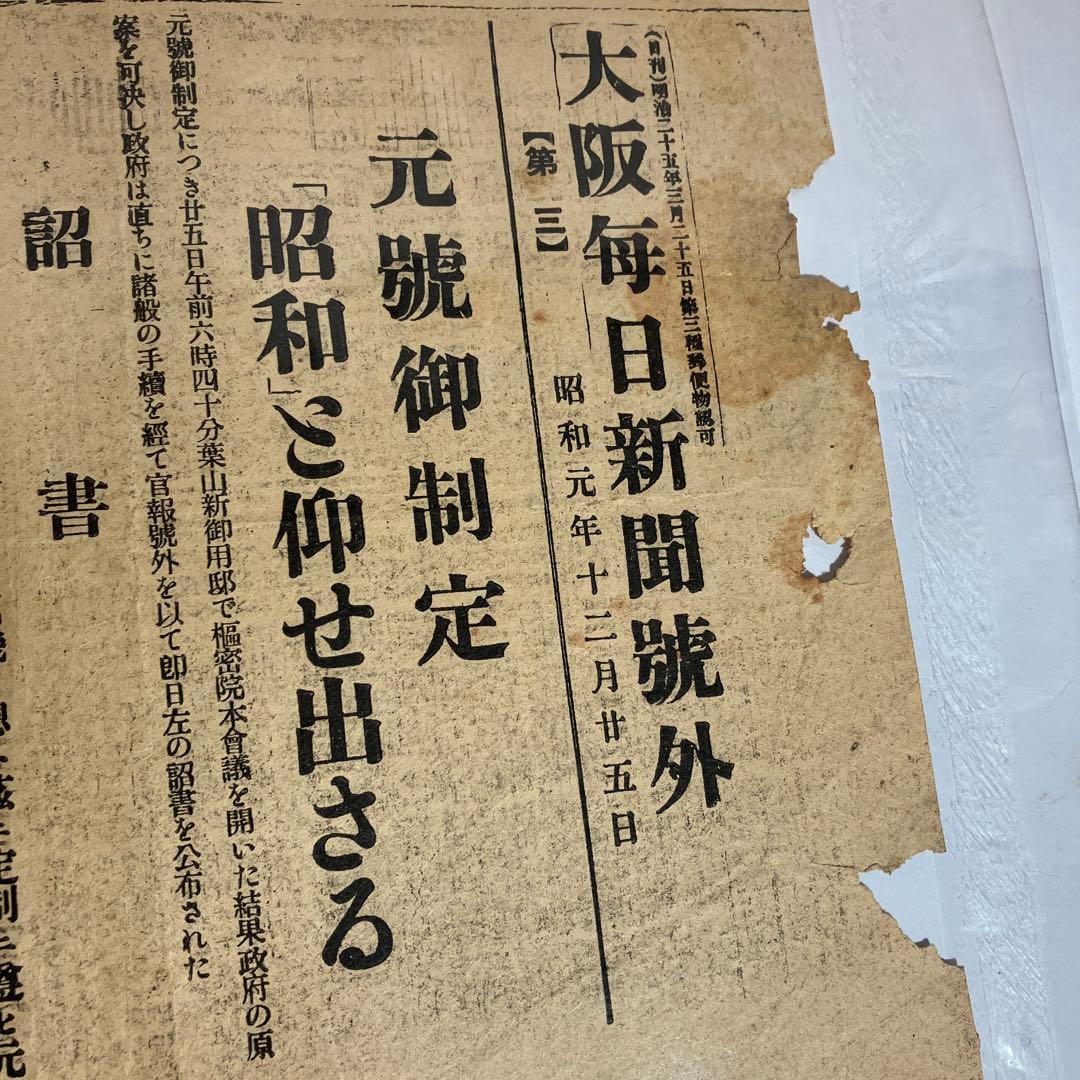 (日刊)明治二十五年三月二十五日第三種郵便物認可
大阪每日新聞號外
【第三】
昭和元年十二月廿五日
元號御制定
「昭和」と仰せ出さる
元號御制定につき廿五日午前六時四十分葉山新御用邸で樞密院本會議を開いた結果政府の原
案を可決し政府は直ちに諸般の手續を經て官報號外を以て卽日左の詔書を公布された
詔書
定制ニ遵ヒ元